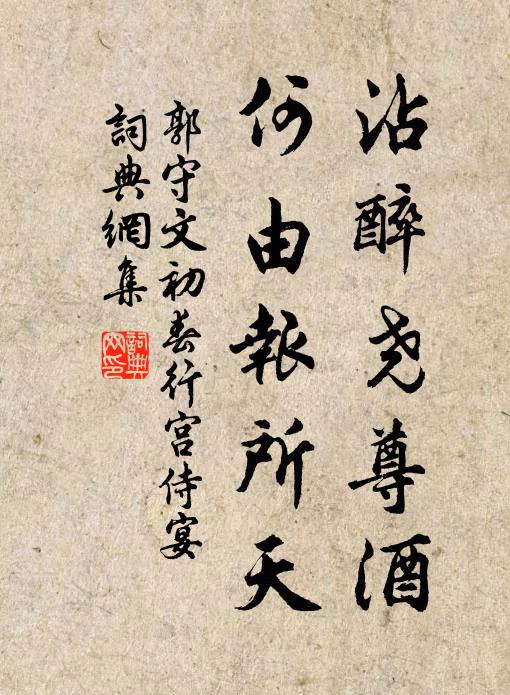 沾醉尧尊酒
何由報所天
郭守文初春行宫侍宴
詞典網集
詞典網印